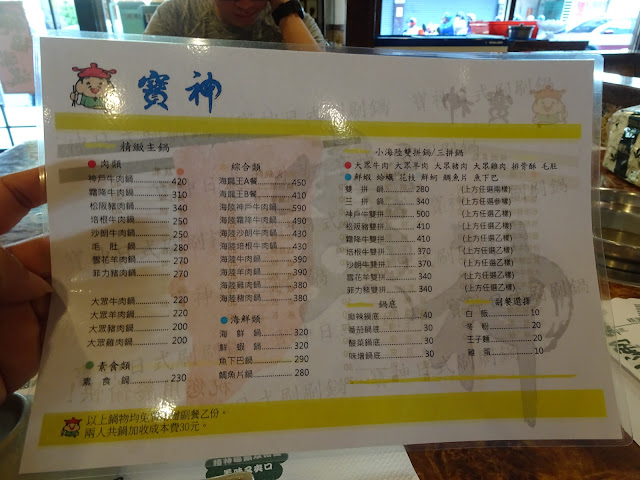 寶神
精緻主鍋
肉類
神戶牛肉鍋 420
霜隆牛肉鍋 310
松阪豬肉鍋 340
培根牛肉鍋 250
沙朗牛肉鍋 250
毛肚鍋 280
雪花羊肉鍋 270
菲力豬肉鍋 270
大眾牛肉鍋 220
大眾羊肉鍋 220
大眾豬肉鍋 200
大眾雞肉鍋 200
素食類
素食鍋 230
綜合類
海龍王A餐 450
海龍王B餐 410
海陸神戶牛肉鍋 590
海陸霜隆牛肉鍋 490
海陸沙朗牛肉鍋 430
海陸培根牛肉鍋 430
海陸牛肉鍋 390
海陸羊肉鍋 390
海陸雞肉鍋 380
海陸豬肉鍋 380
海鮮類
海鮮鍋 320
鮮蝦鍋 320
魚下巴鍋 290
鯛魚片鍋 280
小海陸雙拼鍋/三拼鍋
大眾牛肉 大眾羊肉 大眾豬肉 大眾雞肉 排骨酥 毛肚
鮮蝦 蛤蠣 花枝 鮮蚵 鯛魚片 魚下巴
雙拼鍋 280 (上方任選兩樣)
三拼鍋 340 (上方任選參樣)
神戶牛雙拼 500 (上方任選乙樣)
松阪豬雙拼 410 (上方任選乙樣)
霜隆牛雙拼 410 (上方任選乙樣)
培根牛雙拼 370 (上方任選乙樣)
沙朗牛雙拼 370 (上方任選乙樣)
雪花羊雙拼 340 (上方任選乙樣)
菲力豬雙拼 340 (上方任選乙樣)
鍋底
麻辣鍋底 40
蕃茄鍋底 30
酸菜鍋底 30
味增鍋底 30
副餐選擇
白飯 10
冬粉 20
王子麵 20
雞蛋 10
以上鍋物均
副餐乙份。
兩人共鍋加收成本費30元。